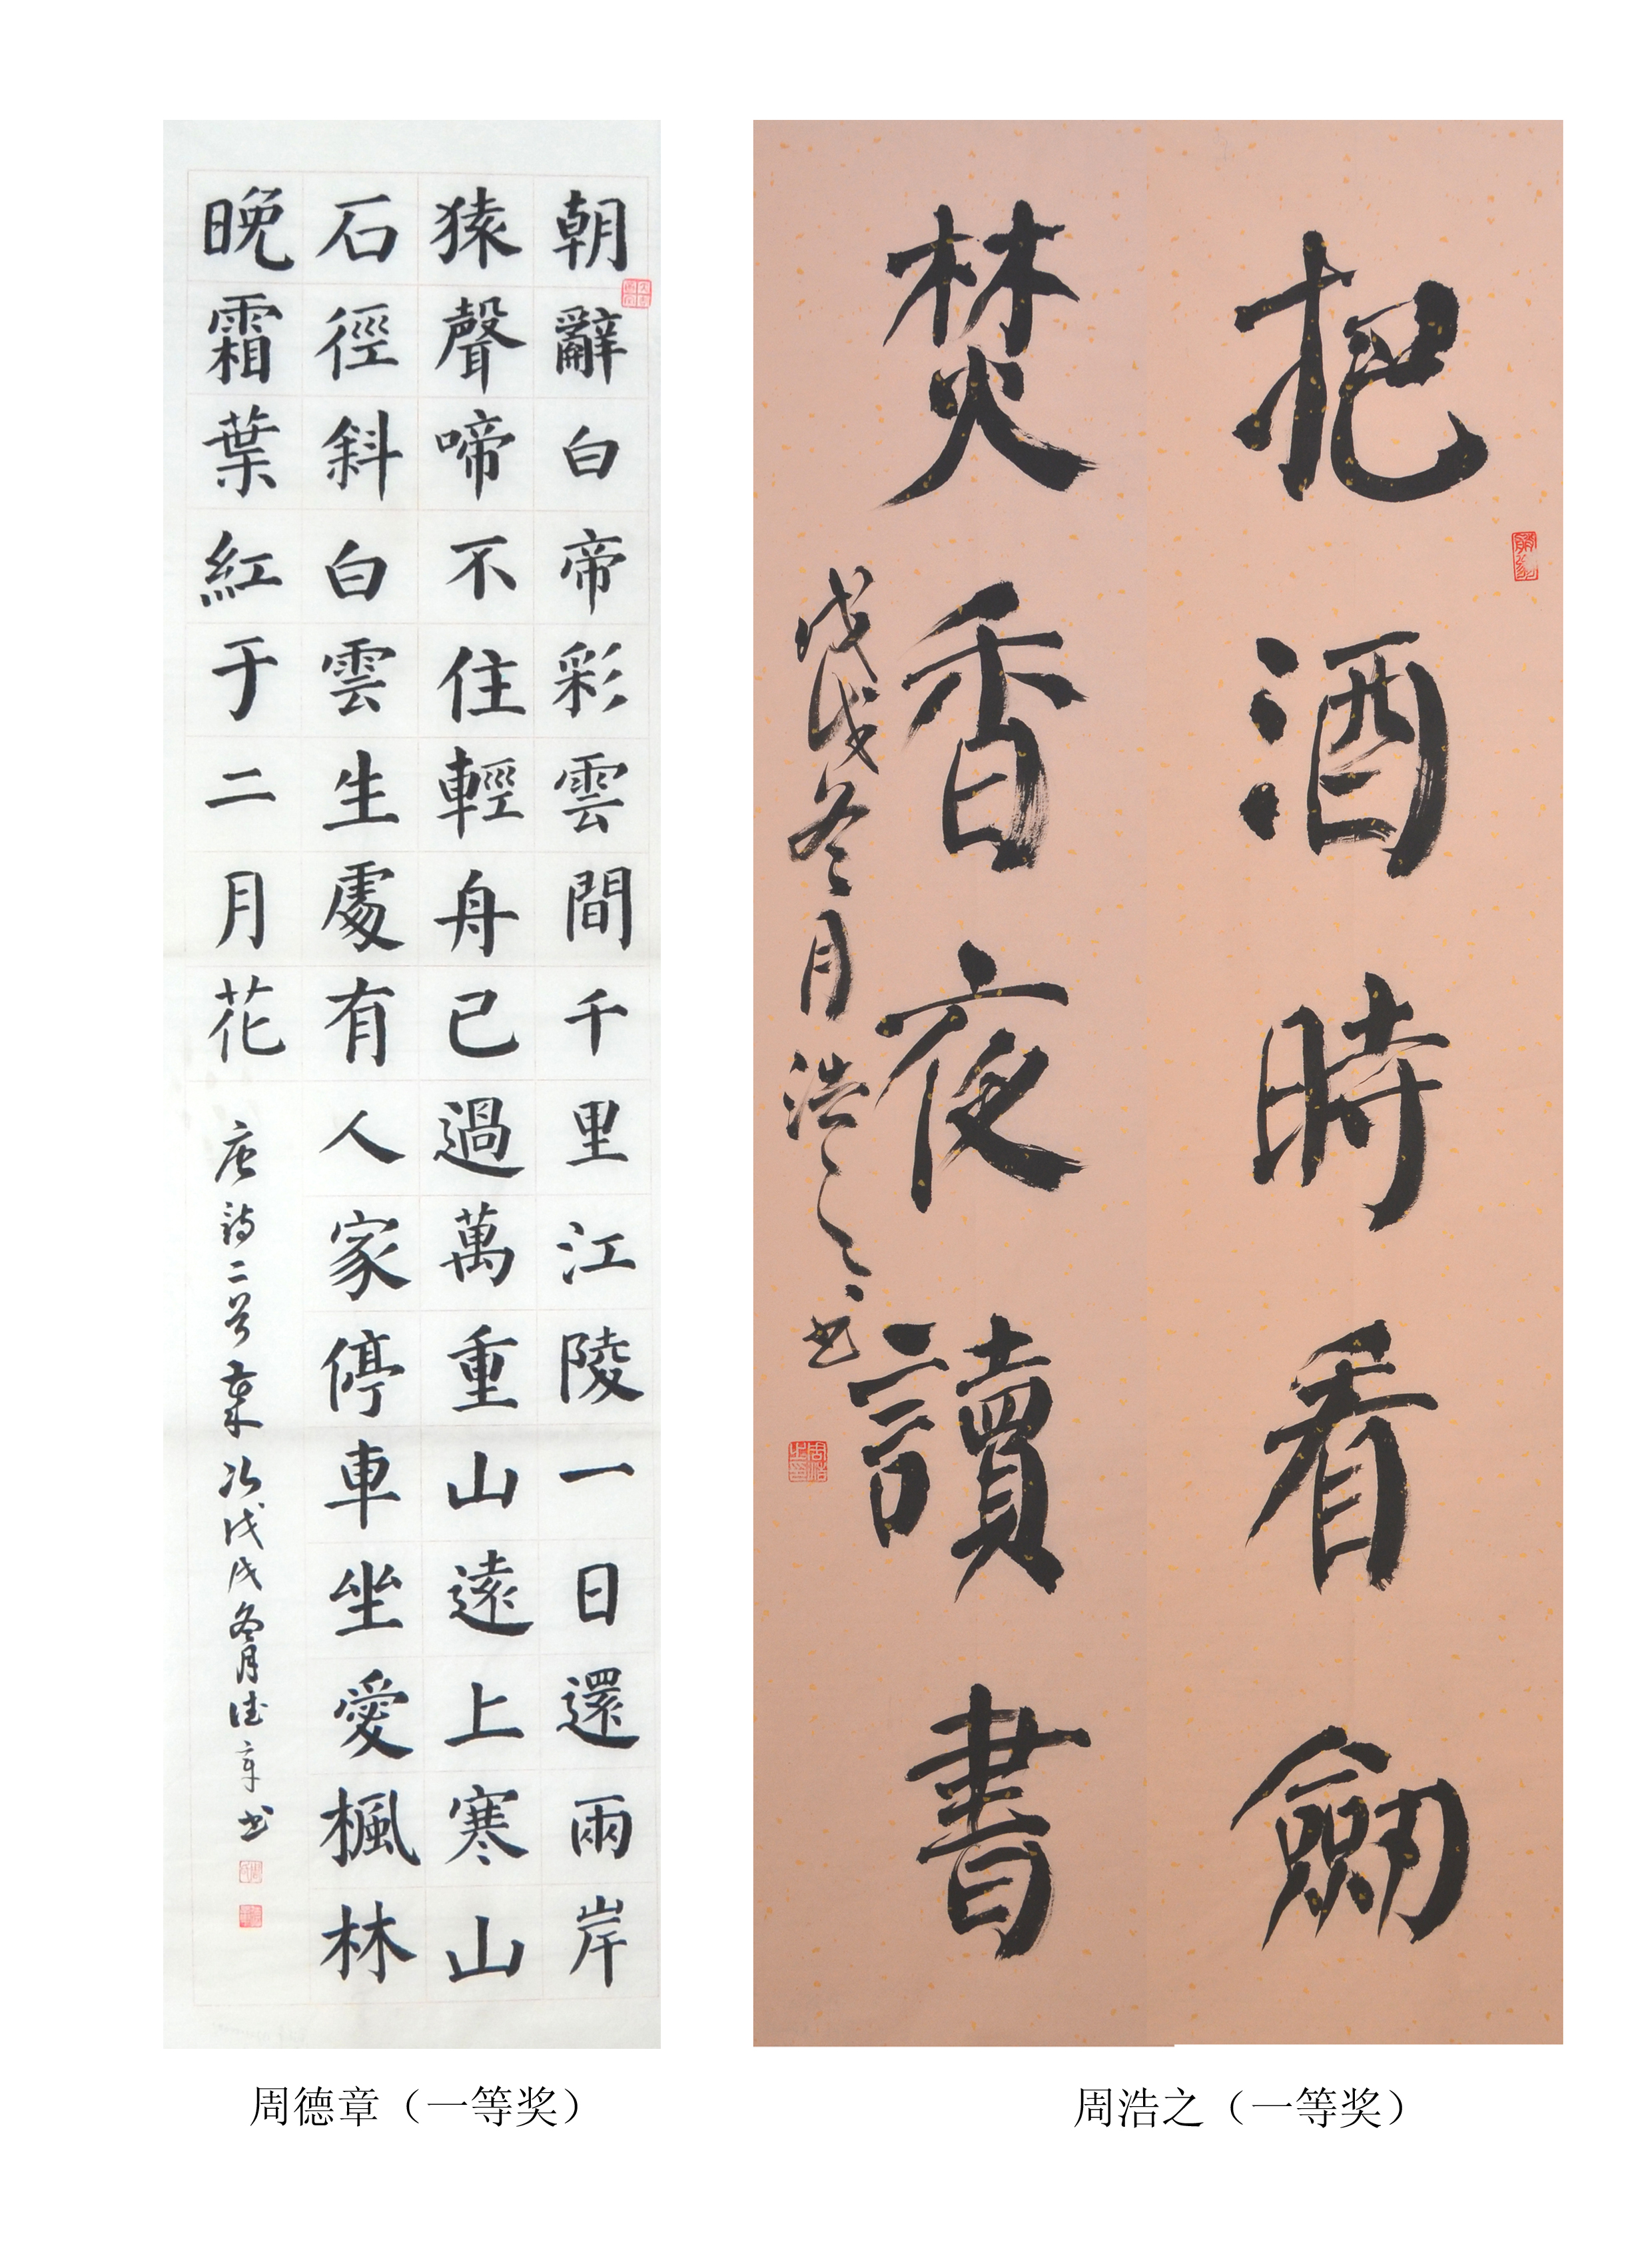 朝辭白帝彩雲間千里江陵一日還兩岸
猿聲啼不住輕舟已過萬重山遠上寒山
石徑斜白雲生處有人家停車坐愛楓林
晚霜葉紅于二月花
唐詩二首 歲次戊戌冬月德章书
把酒時看劒
焚香夜讀書
戊戌冬月浩之书
周浩之印
周德章（一等奖）
周浩之（一等奖）